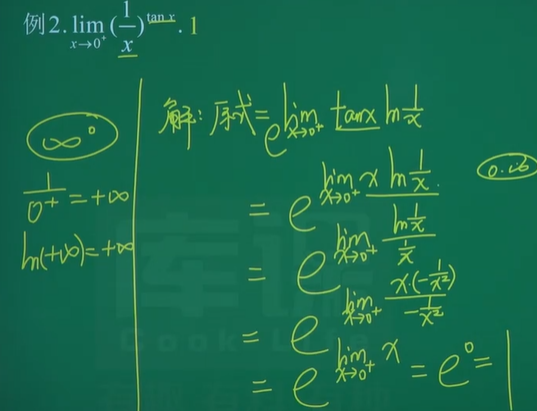 例2. lim_{x→0⁺} (1/x)^{tan x}. 1
∞⁰
1/0⁺ = +∞
ln(+∞) = +∞
解: 原式 = e^{lim_{x→0⁺} tanx ln 1/x}
= e^{lim_{x→0⁺} x ln 1/x}. 0·∞
= e^{lim_{x→0⁺} (ln 1/x)/(1/x)}
= e^{lim_{x→0⁺} (x·(-1/x²))/(-1/x²)}
= e^{lim_{x→0⁺} x} = e⁰ = 1
库课